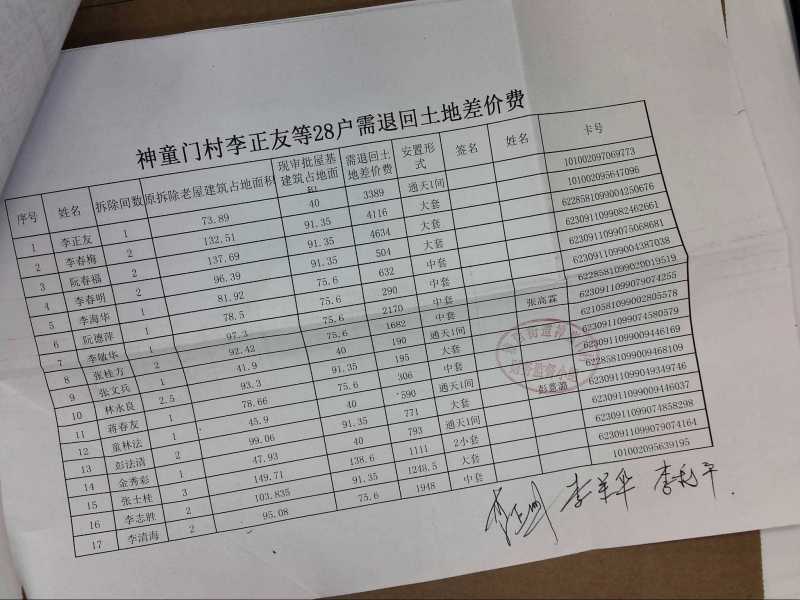 神童门村李正友等28户需退回土地差价费
序号 姓名 拆除间数 原拆除老屋建筑占地面积 现审批屋基建筑占地面积 需退回土地差价费 安置形式 签名 姓名 卡号
1 李正友 1 73.89 40 3389 通天1间 101002097069773
2 李春梅 2 132.51 91.35 4116 大套 101002095647096
3 阮春福 2 137.69 91.35 4634 大套 6228581099004250676
4 李春明 2 96.39 91.35 504 大套 6230911099082462661
5 李海华 1 81.92 75.6 632 中套 6230911099075068681
6 阮德萍 1 78.5 75.6 290 中套 6230911099004387038
7 李敏华 1 97.3 75.6 2170 中套 6228581099020019519
8 张桂方 2 92.42 75.6 1682 中套 张高霖 6230911099079074255
9 张文兵 1 41.9 40 190 通天1间 6210581099002805578
10 林永良 2.5 93.3 91.35 195 大套 6230911099074580579
11 蒋春友 1 78.66 75.6 306 中套 6230911099009446169
12 童林法 1 45.9 40 590 通天1间 6228581099009468109
13 彭法清 2 99.06 91.35 771 大套 彭意潞 6230911099049349746
14 金秀彩 1 47.93 40 793 通天1间 6230911099009446037
15 张士桂 3 149.71 138.6 1111 2小套 6230911099074858298
16 李志胜 2 103.835 91.35 1248.5 大套 6230911099079074164
17 李清海 2 95.08 75.6 1948 中套 101002095639195